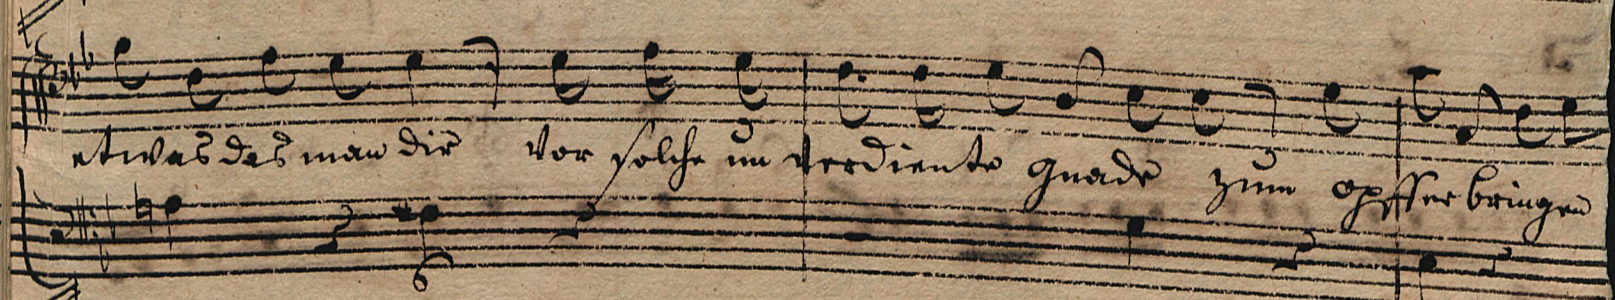 etwas das man dir vor solche un verdiente gnade zum opffer bringen
6